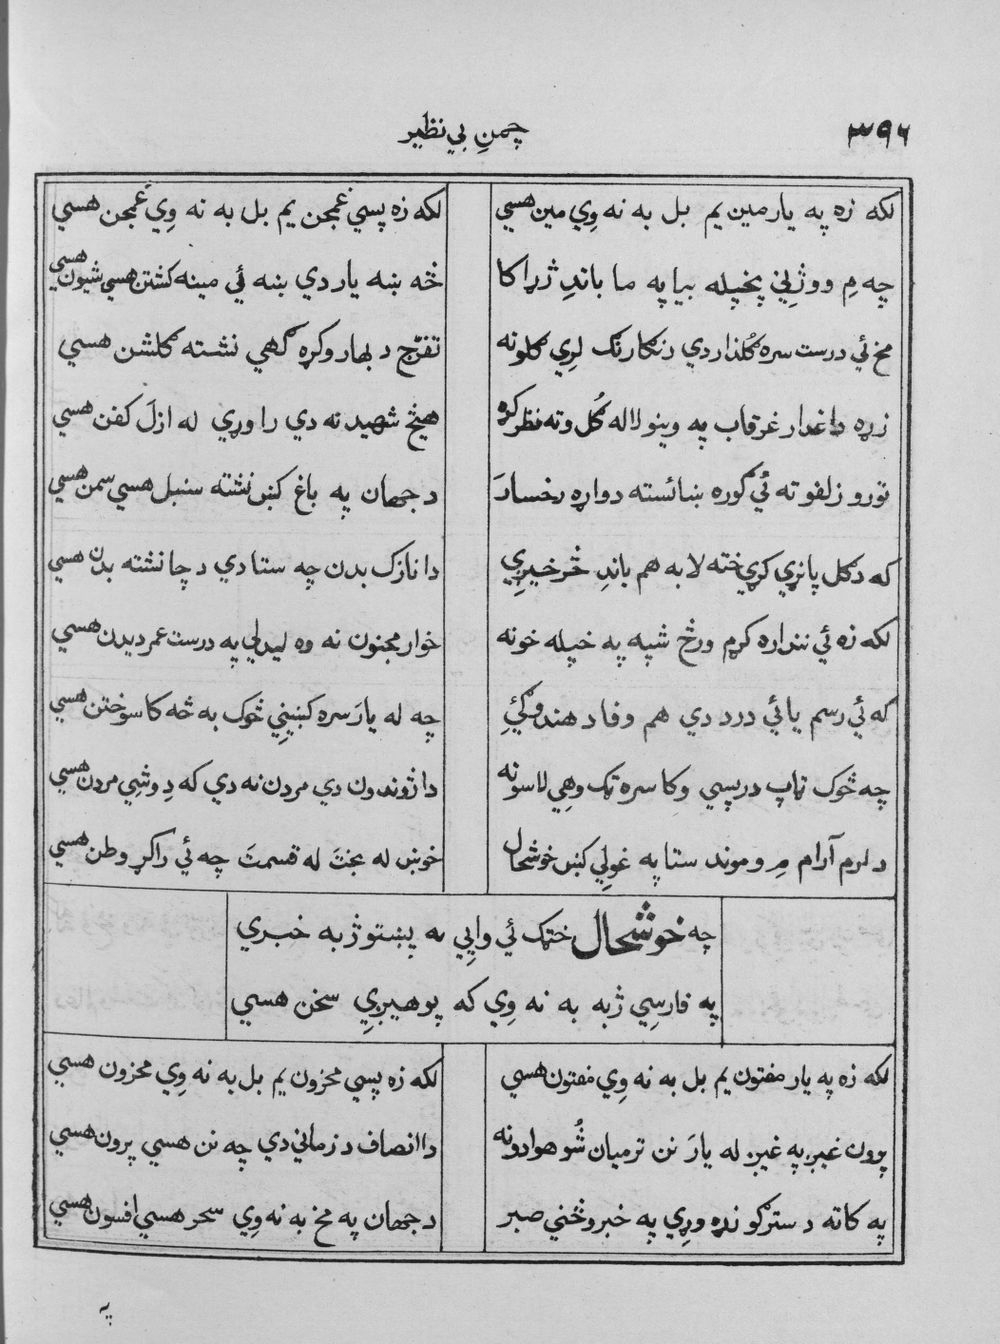 ۳۹۶ چمنِ بي نظير
لکه زه په يار مين يم بل به نه وِي مين هسي لکه زه پسي غمجن يم بل به نه وِي غمجن هسي
چه مِ ووژنِي پخپله بيا په ما باندِ ژړا کا څه ښه يار دي ښه ئي مينه کشتن هسي شيون هسي
مخ ئي درست سره ګلذار دي رنکارنک لرِي ګلونه تفرّج د بهار وکړه ګهي نشته ګلشن هسي
زړه داغدار غرقاب په وينو لاله ګُل وته نظر کړه هيڅ شهيد نه دي راوړي له ازلَ کفن هسي
تورو زلفو ته ئي ګوره ښائسته دواړه رخسارَ د جهان په باغ کښ نشته سنبل هسي سمن هسي
که د کل پاڼړي کړي خته لا به هم باندِ څرخيږِي دا نازک بدن چه ستا دي د چا نشته بدن هسي
لکه زه ئي ننداره کړم ورځ شپه په خپله خونه خوار مجنون نه وه ليدلي په درست عمر ديدن هسي
که ئي رسم يا ئي درد دي هم وفا د هندوکئِ چه له يارَ سره کښينِي څوک به څه کا سوختن هسي
چه څوک تاپ درپسي وکا سره تک وهِي لاسونه دا ژوندون دي مردن نه دي که دِ وشِي مردن هسي
د لرم آرام مِ وموند ستا په غولِي کښ خوشحال خوښ له بختَ له قسمتَ چه ئي راکړ وطن هسي
چه خوشحال ختک ئي وايِي په پښتو ژبه خبري
په فارسِي ژبه به نه وِي که پوهيږِي سخن هسي
لکه زه په يار مفتون يم بل به نه وِي مفتون هسي لکه زه پسي محزون يم بل به نه وِي محزون هسي
پرون غيږ په غيږ له يارَ نن ترميان شُو هوادونه دا انصاف د زمانِي دي چه نن هسي پرون هسي
په کاته د سترګو زړه وړِي په خبرو څنِي صبر د جهان په مخ به نه وِي سحر هسي افسون هسي
په